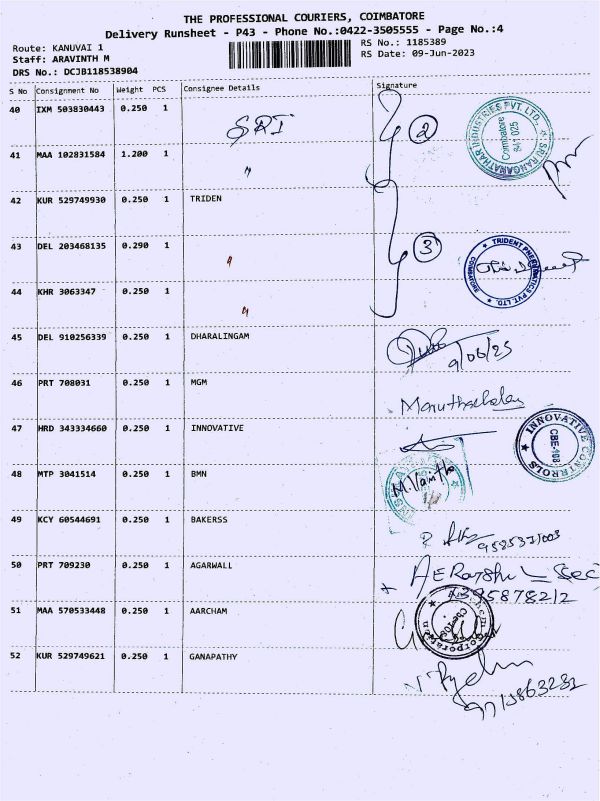 THE PROFESSIONAL COURIERS, COIMBATORE
Delivery Runsheet - P43 - Phone No.:0422-3505555 - Page No.:4
Route: KANUVAI 1 RS No.: 1185389
Staff: ARAVINTH M RS Date: 09-Jun-2023
DRS No.: DCJB118538904
S No Consignment No Weight PCS Consignee Details Signature
40 IXM 503830443 0.250 1 SRI 2
SRI RANGANATHAR INDUSTRIES PVT. LTD., Coimbatore 641 025
41 MAA 102831584 1.200 1 "
42 KUR 529749930 0.250 1 TRIDEN
43 DEL 203468135 0.290 1 " 3
TRIDENT PNEUMATICS PVT. LTD. COIMBATORE
44 KHR 3063347 0.250 1 "
45 DEL 910256339 0.250 1 DHARALINGAM 9/06/23
46 PRT 708031 0.250 1 MGM Maruthachalam
47 HRD 343334660 0.250 1 INNOVATIVE
INNOVATIVE CONTROLS CBE-108
48 MTP 3041514 0.250 1 BMN M.Vanitha
49 KCY 60544691 0.250 1 BAKERSS
50 PRT 709230 0.250 1 AGARWALL
51 MAA 570533448 0.250 1 AARCHAM
52 KUR 529749621 0.250 1 GANAPATHY